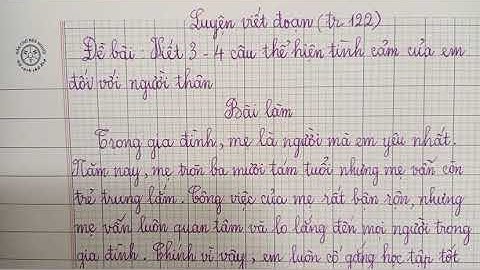 Luyện viết đoạn (tr 122)
Đề bài: Viết 3 - 4 câu thể hiện tình cảm của em
đối với người thân
Bài làm
Trong gia đình, mẹ là người mà em yêu nhất.
Năm nay, mẹ tròn ba mươi tám tuổi nhưng mẹ vẫn còn
trẻ trung lắm. Công việc của mẹ rất bận rộn, nhưng
mẹ vẫn luôn quan tâm và lo lắng đến mọi người trong
gia đình. Chính vì vậy, em luôn cố gắng học tập tốt